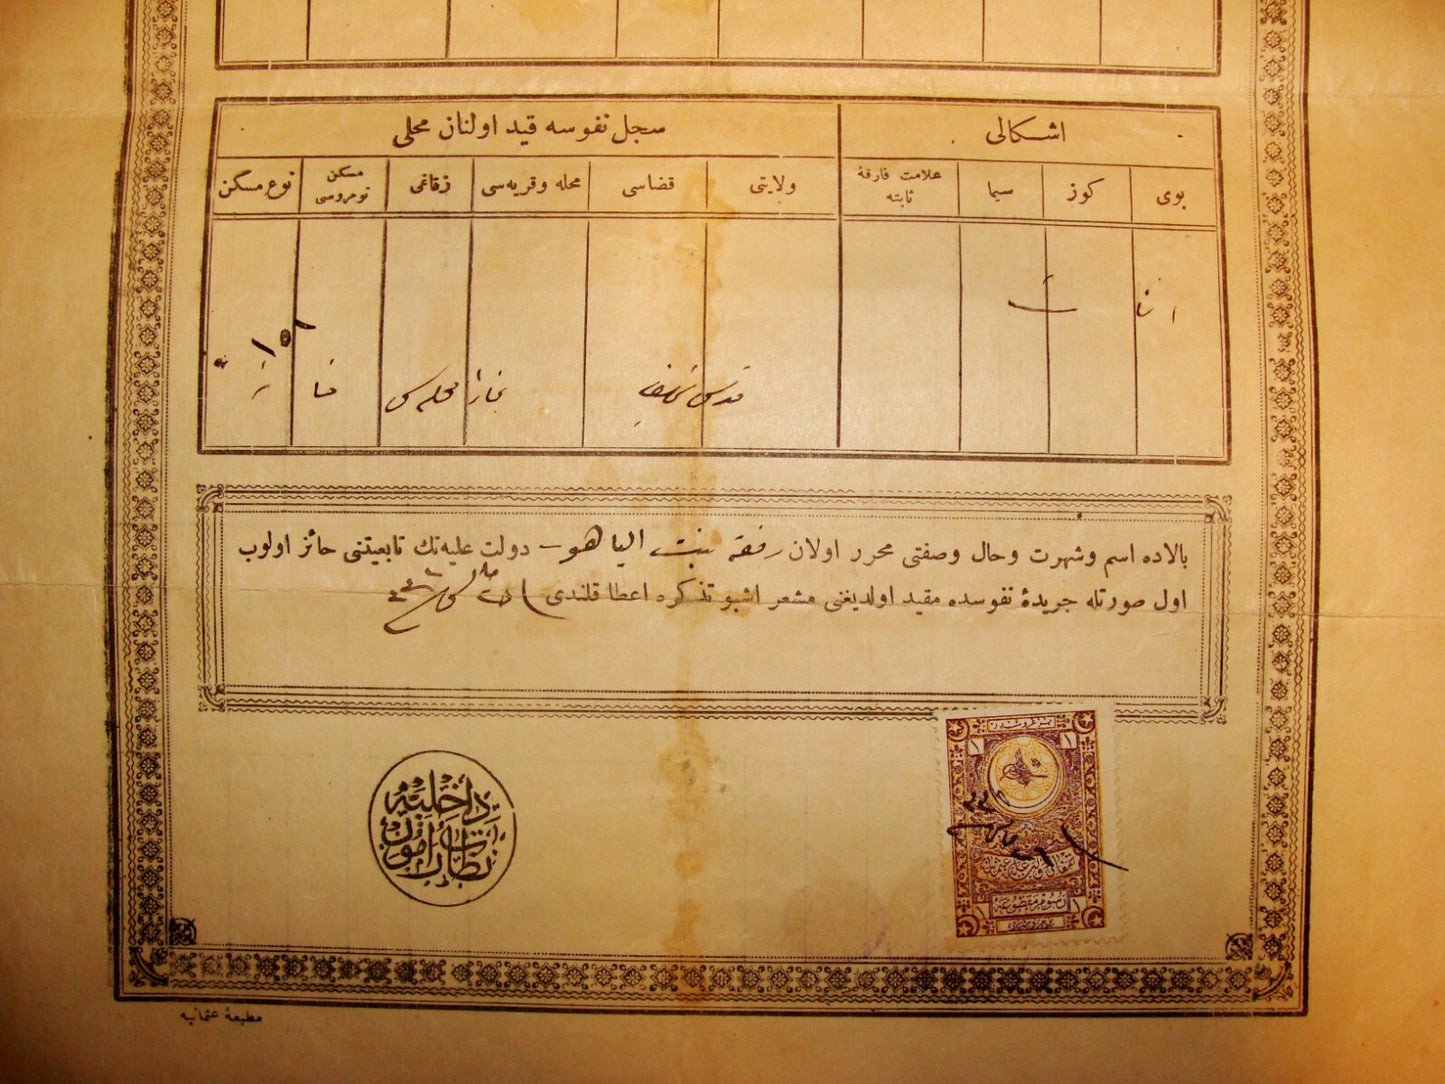 اشكالی
سجل نفوسه قید اولنان محلی
بوی
كوز
سیما
علامت فارقهٔ ثابته
ولایتی
قضاسی
محله وقریه‌سی
زقاغی
مسكن نومروسی
نوع مسكن
اناث
قدس شریف
محله سی
خانه
بالاده اسم وشهرت وحال وصفتی محرر اولان رفقه بنت الیاهو دولت علیه‌نك تابعیتنی حائز اولوب
اول صورتله جریدهٔ نفوسده مقید اولدیغنی مشعر اشبو تذكره اعطا قلندی
داخلیه
نظارت
امور
١ ١
رسوم مقطوعه
١ ١
مطبعهٔ عثمانیه